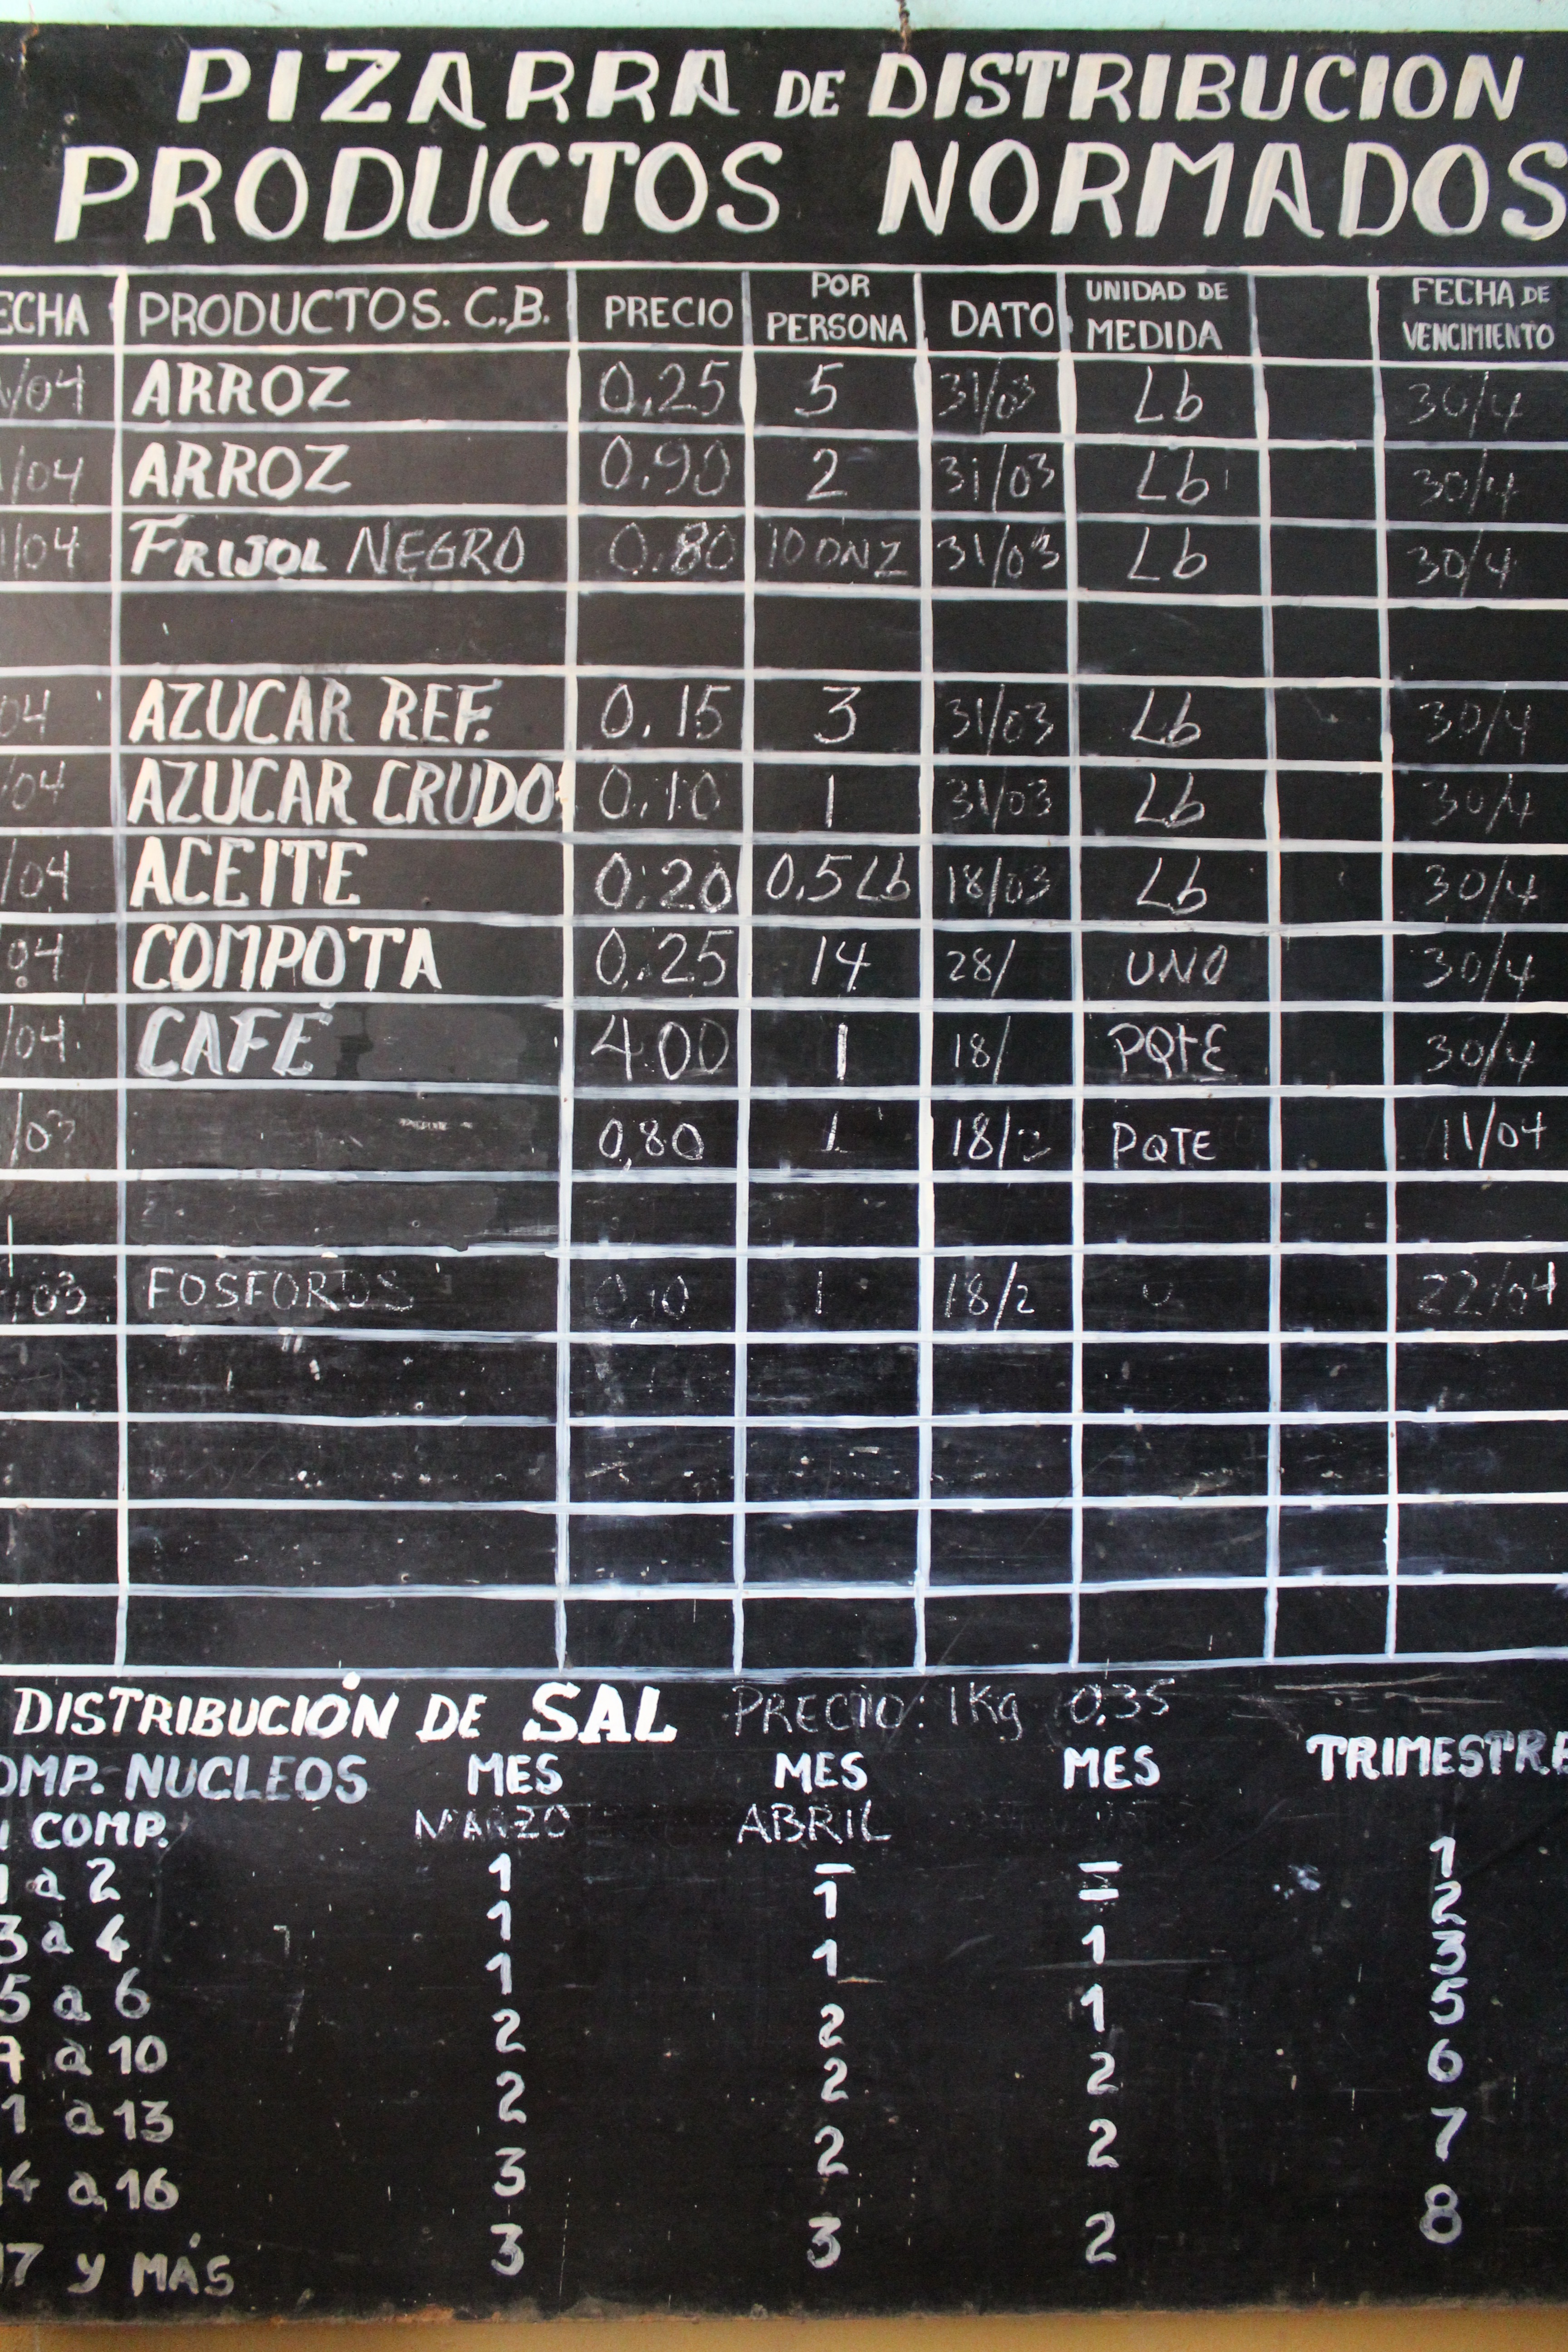 PIZARRA DE DISTRIBUCION
PRODUCTOS NORMADOS
ECHA PRODUCTOS. C.B. PRECIO POR PERSONA DATO UNIDAD DE MEDIDA FECHA DE VENCIMIENTO
/04 ARROZ 0.25 5 31/03 Lb 30/4
/04 ARROZ 0.90 2 31/03 Lb 30/4
/04 FRIJOL NEGRO 0.80 10 ONZ 31/03 Lb 30/4
04 AZUCAR REF. 0.15 3 31/03 Lb 30/4
/04 AZUCAR CRUDO 0.10 1 31/03 Lb 30/4
/04 ACEITE 0.20 0.5 Lb 18/03 Lb 30/4
04 COMPOTA 0.25 14 28/ UNO 30/4
/04 CAFÉ 4.00 1 18/ PQTE 30/4
/03 0,80 1 18/2 PQTE 11/04
/03 FOSFOROS 0,10 1 18/2 U 22/04
DISTRIBUCIÓN DE SAL PRECIO: 1Kg 0.35
OMP. NUCLEOS MES MES MES TRIMESTRE
COMP. MARZO ABRIL
1 a 2 1 – – 1
3 a 4 1 1 – 2
5 a 6 1 1 1 3
7 a 10 2 2 1 5
1 a 13 2 2 2 6
14 a 16 3 2 2 7
17 y MÁS 3 3 2 8